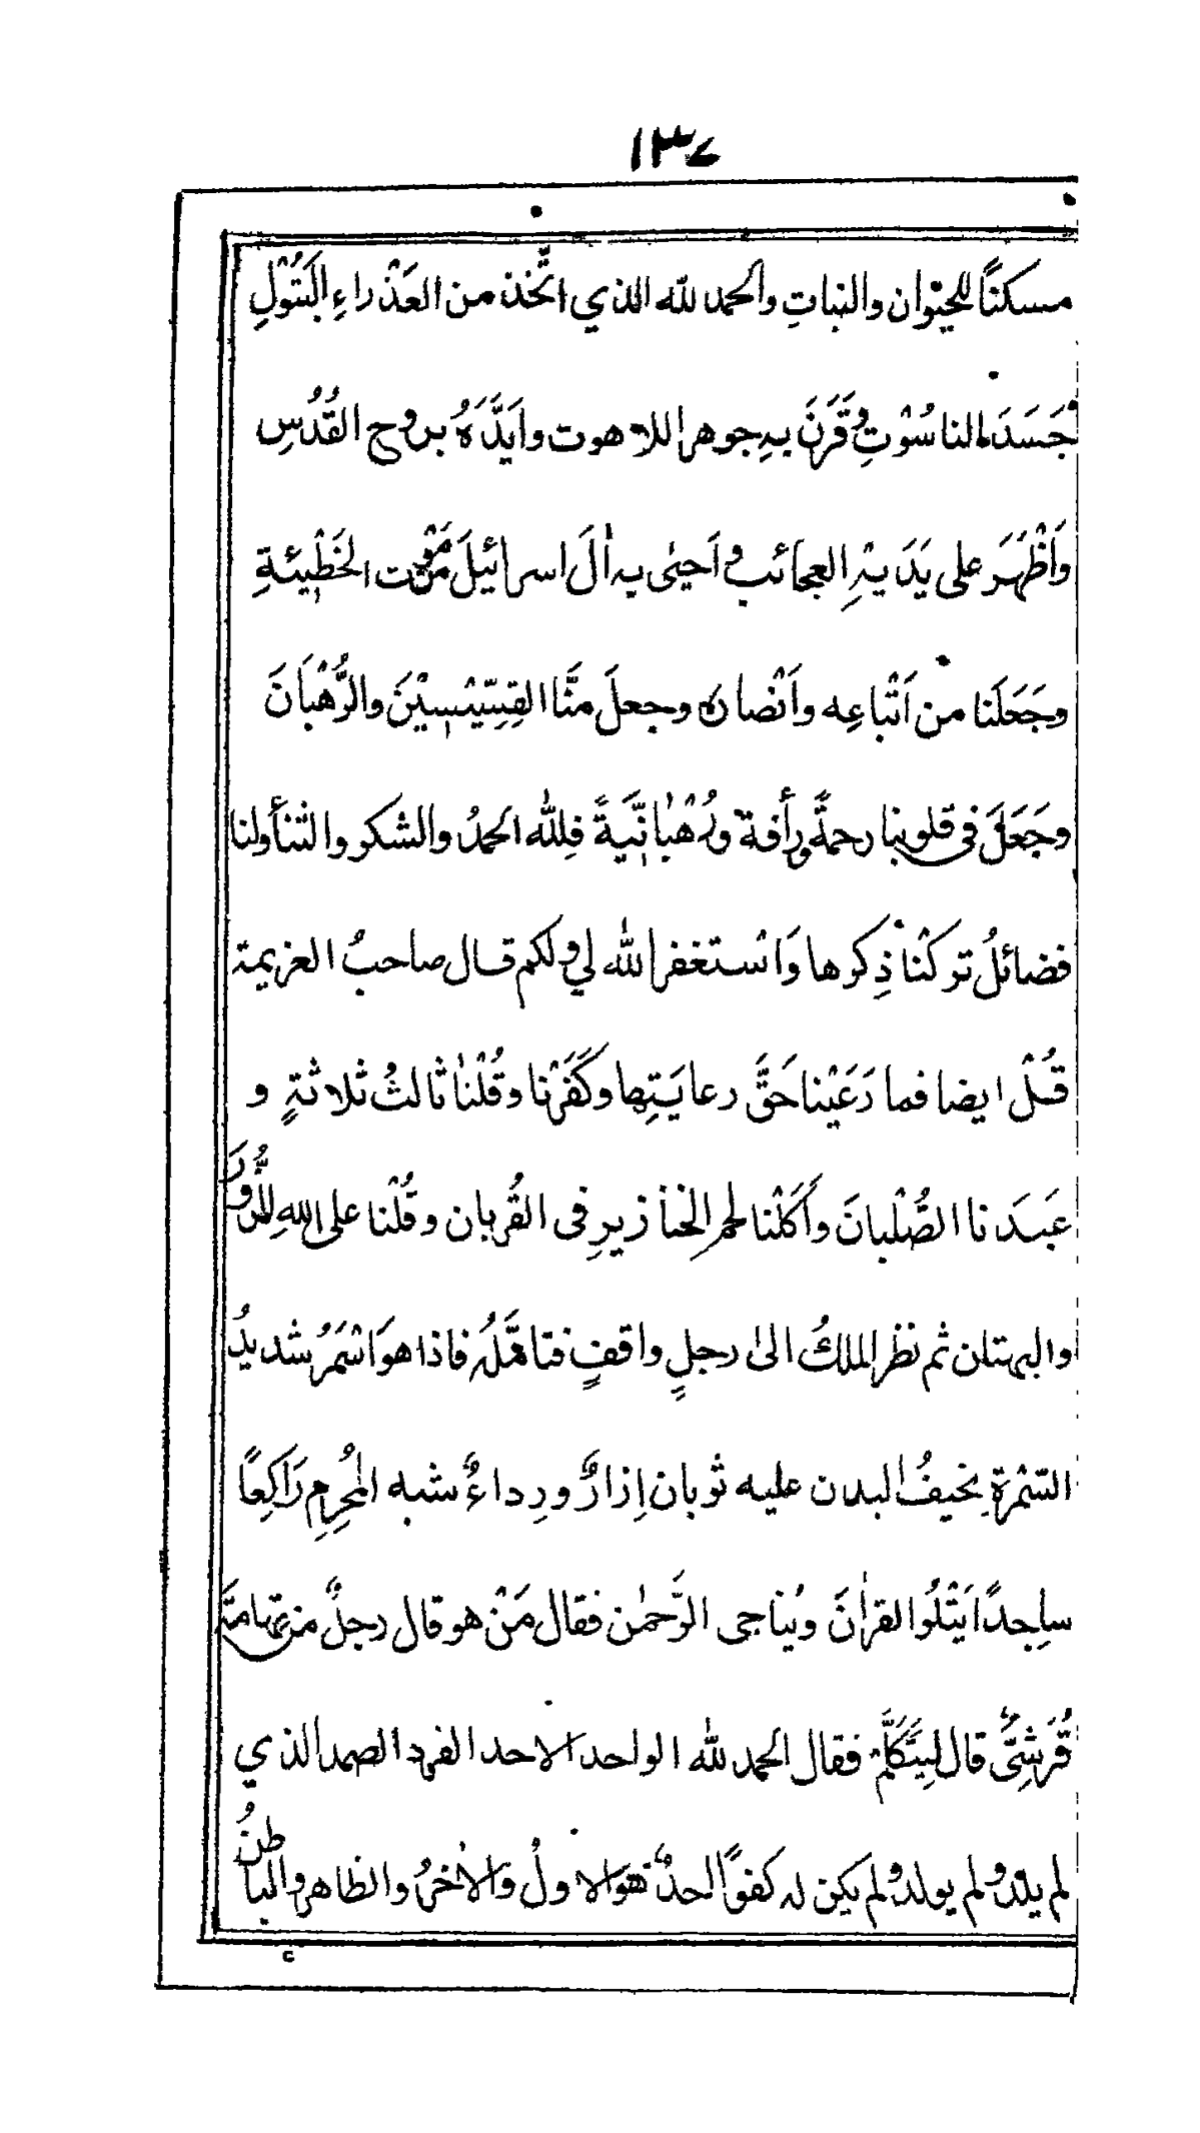 ١٣٧
مسكنًا للحيْوان والنباتِ والحمد لله الذي اتَّخذ من العَذْراءِ البَتُوْلِ
جَسَدَ الناسُوْتِ وقَرَنَ بہِ جوهر اللاهوت وايَدَّهُ بروح القُدُسِ
وَاَظْهَرَ على يَدَيْہِ العجائب و اَحيٰى بہ اٰلَ اسرائيلَ مِنْ مَوْت الخَطِيْئةِ
وجَعَلَنا من اَتْباعِه واَنْصاره وجعلَ منَّا القِسِّيْسِيْنَ والرُّهْبَانَ
وجَعَلَ فى قلوبنا رحمةً ورأفة ورُهْبَانِيَّةً فِلله الحمدُ والشكر والثنأ ولنا
فضائلُ تركْنا ذِكرها وَاسْتغفر الله لي ولكم قال صاحبُ العزيمة
قُلْ ايضا فما رَعَيْنا حَقَّ رعايَتِها وكَفَرْنا وقُلْنا ثالثُ ثلاثةٍ و
عَبَدنا الصُّلْبانَ وأَكَلْنا لحم الِخنازيرِ فى القُربان وقُلْنا على اللهِ الزُّوْرَ
والبهتان ثم نظر الملكُ الىٰ رجلٍ واقفٍ فتاَمَّلَہُ فاذا هو اَسْمَرُ شديدُ
السّمْرةِ نحيفُ البدن عليه ثوبان اِزارٌ ورِداءٌ شبه المُحرِمِ رَاكِعًا
ساجِدًا يَتْلُوا القراٰنَ ويُناجى الرَّحمٰن فقال مَنْ هو قال رجلٌ من تِهامةَ
قُرَشِىٌّ قال لِيَتَكَلَّمْ فقال الحمد لله الواحد الاحد الفرد الصمد الذي
لم يلدْ ولم يولد ولم يكن لہ كفوًا احدٌ هوَ الاولُ والاٰخرُ والظاهر والباطنُ